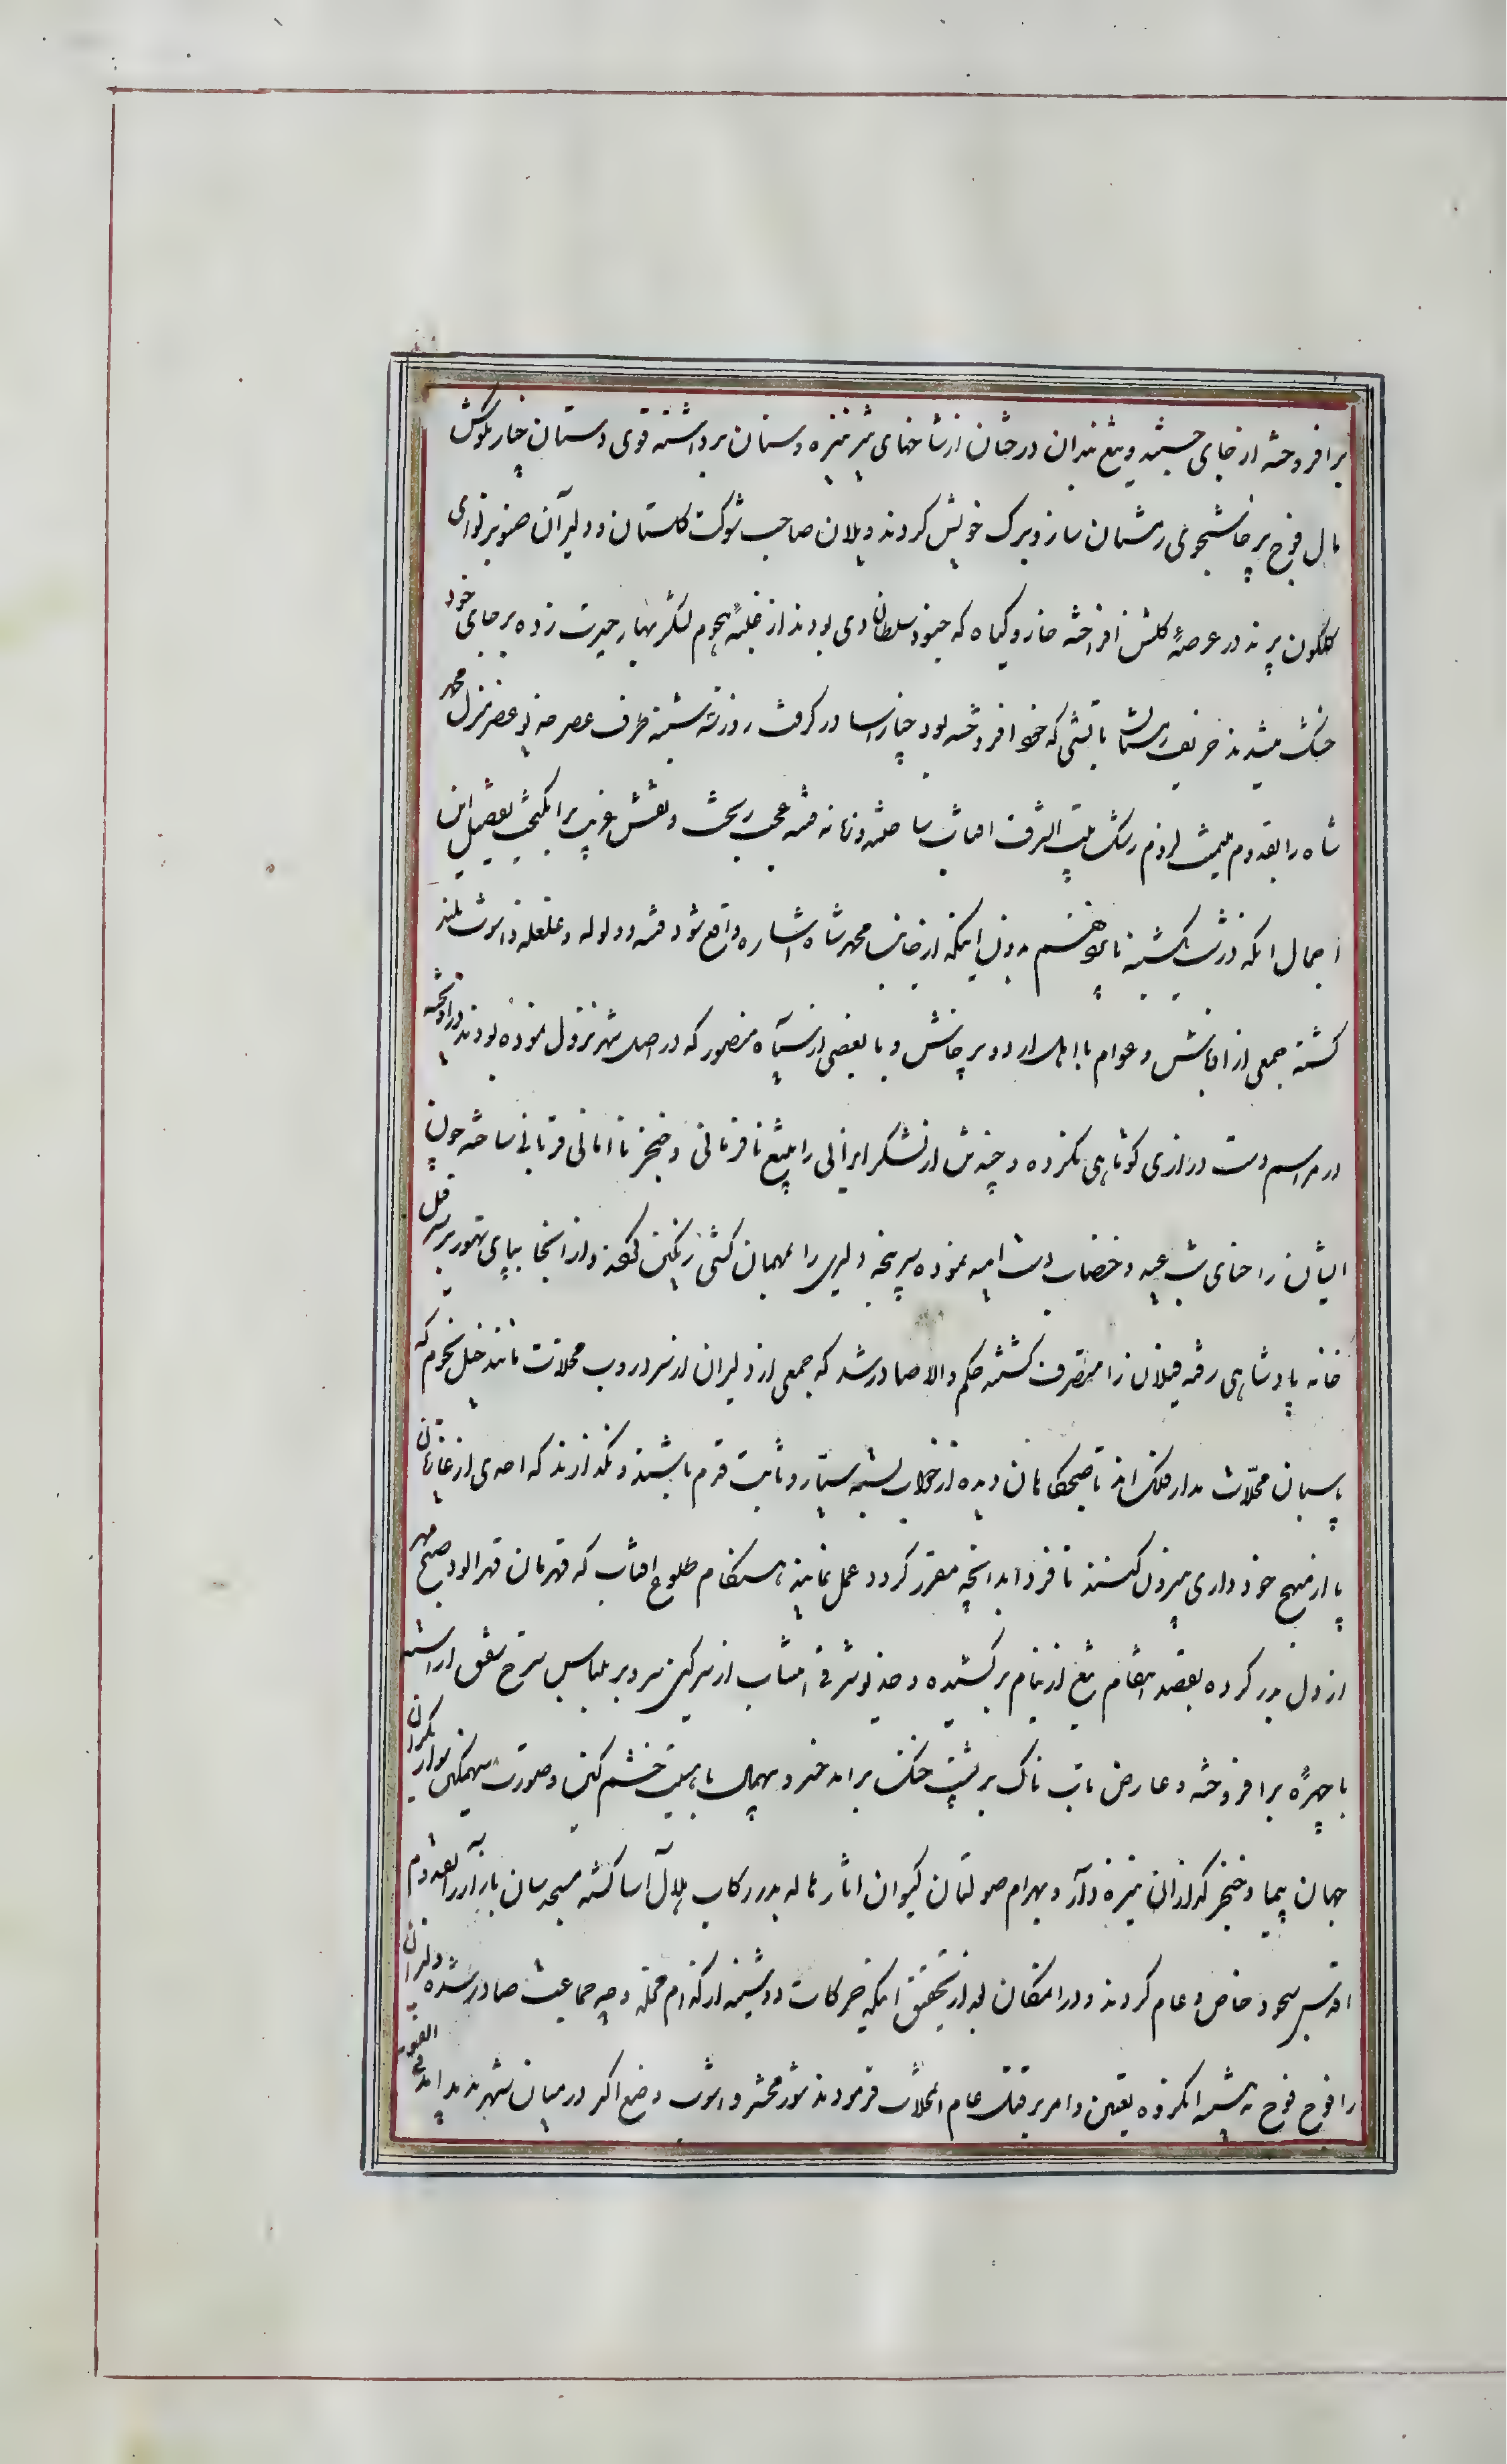 برافروخته از جای جسته و تیغ بندان درختان از شاخهای تیر نیزه و سنان برداشته قوی دستان چنار بلوکش
بال فوج پرخاشجوی رستمان ساز و برک خویش کردند و یلان صاحب شوکت کلستان و دلیرآن صنوبر لوای
کلکون پرند در عرصهٔ کلشن افراخته خار و کیاه که جنود سلطان دی بودند از غلبهٔ هجوم لشکر بهار حیرت زده بر جای خود
خشک میشدند خریف زمستان باتشی که خود افروخته بود چنار اسا در کرفت روز نه شنبه طرف عصر صاحبقران منزل محمد
شاه را بقدوم میمنت لزوم رشک بیت الشرف افتاب ساخته و زمانه فتنه عجب ریخت و نقش غریب برانکیخت تفصیل این
اجمال انکه در شب یکشنبه بدون اینکه از جانب محمد شاه اشاره واقع شود فتنه و ولوله و غلغله و اشوب بلند
کشته جمعی از اوباش و عوام با اهل اردو پرخاش و با بعضی از سپاه منصور که در اصل شهر نزول نموده بودند در اویخته
در مراسم دست درازی کوتاهی نکرده و چند تن از لشکر ایرانی را بتیغ نافرمانی و خنجر نا امانی قربانی ساخته خون
ایشان را حنای شب عید و خضاب دست امید نموده سر پنجه دلیری را بمهمان کشی رنکین کردند و از انجا بپای تهور بر سر فیل
خانه پادشاهی رفته فیلان را متصرف کشتند حکم والا صادر شد که جمعی از دلیران از سر دروب محلات مانند خیل نجوم که
پاسبان محلات مدار فلک اند تا صبحکاهان دیده از خواب بسته سیار و ثابت قدم باشند و نکذارند که احدی از غازیان
پا از منهج خودداری بیرون کنند تا فردا بدانچه مقرر کردد عمل نمایند هنکام طلوع افتاب که قهرمان قهرالود صبح مهر
از دل بدر کرده بقصد انتقام تیغ از نیام برکشیده و خدیو شرقی انتساب از سرکین سر و بر بلباس سرخ شفق اراسته
با چهرهٔ برافروخته و عارض تاب ناک بر پشت خنک برامد خسرو بیهمال با هیبت خشم کین و صورت سهمکین سوار یکران
جهان پیما و خنجر کذاران نیزه دار و بهرام صولتان کیوان اثار هاله بدر رکاب هلال آسا کشته مسجد سان بازار را بقدوم
اقدس مسجود خاص و عام کردند و در انمکان بعد از تحقیق اینکه حرکات دوشینه از کدام محله و چه جماعت صادر شده دلیران
را فوج فوج تعیین و امر بر قتل عام انمحلات فرمودند شور محشر و اشوب فزع اکبر در میان شهر پدید امد فی الفور